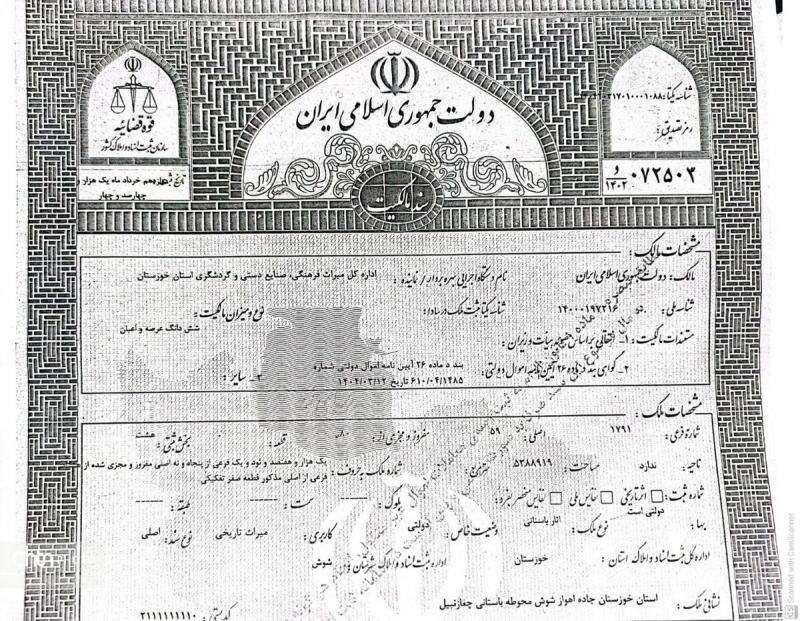 دولت جمهوری اسلامی ایران
قوه قضائیه
سازمان ثبت اسناد و املاک کشور
چهارصد و چهار
رمز تصدیق:
۰۷۲۵۰۲
۱۴۰۲
سند مالکیت
مشخصات مالک:
مالک: دولت جمهوری اسلامی ایران
نام دستگاه اجرایی بهره بردار / نماینده : اداره کل میراث فرهنگی، صنایع دستی و گردشگری استان خوزستان
شناسه ملی: ۱۴۰۰۰۱۹۷۲۱۶
شناسه یکتا ثبت ملک در سادا:
نوع و میزان مالکیت: شش دانگ عرصه و اعیان
مستندات مالکیت: ۱_ انتقالی براساس مصوبه هیات وزیران:
۲_ گواهی بند د ماده ۲۶ آیین نامه اموال دولتی: بند د ماده ۲۶ آیین نامه اموال دولتی شماره ۶۱۰/۰۴/۱۴۸۵ تاریخ ۱۴۰۴/۰۳/۱۲
۳_ سایر:
مشخصات ملک:
شماره فرعی: ۱۷۹۱ اصلی: ۵۹ مفروز و مجزی از: قطعه: ۰ بخش ثبتی: هشت
ناحیه: ندارد مساحت: ۵۳۸۸۹۱۹ شماره ملک به حروف: یک هزار و هفتصد و نود و یک فرعی از پنجاه و نه اصلی مفروز و مجزی شده از
فرعی از اصلی مذکور قطعه صفر تفکیکی
شماره ثبت: اثر تاریخی نفایس ملی نفایس منحصر بفرد: بلوک: سمت: طبقه:
بها: دولتی است نوع ملک: آثار باستانی وضعیت خاص: دولتی کاربری: میراث تاریخی نوع سند: اصلی
اداره کل ثبت اسناد و املاک استان: خوزستان اداره ثبت اسناد و املاک شهرستان: شوش
نشانی ملک: استان خوزستان جاده اهواز شوش محوطه باستانی چغازنبیل
کد پستی: ۲۱۱۱۱۱۱۱۱۰
Scanned with CamScanner